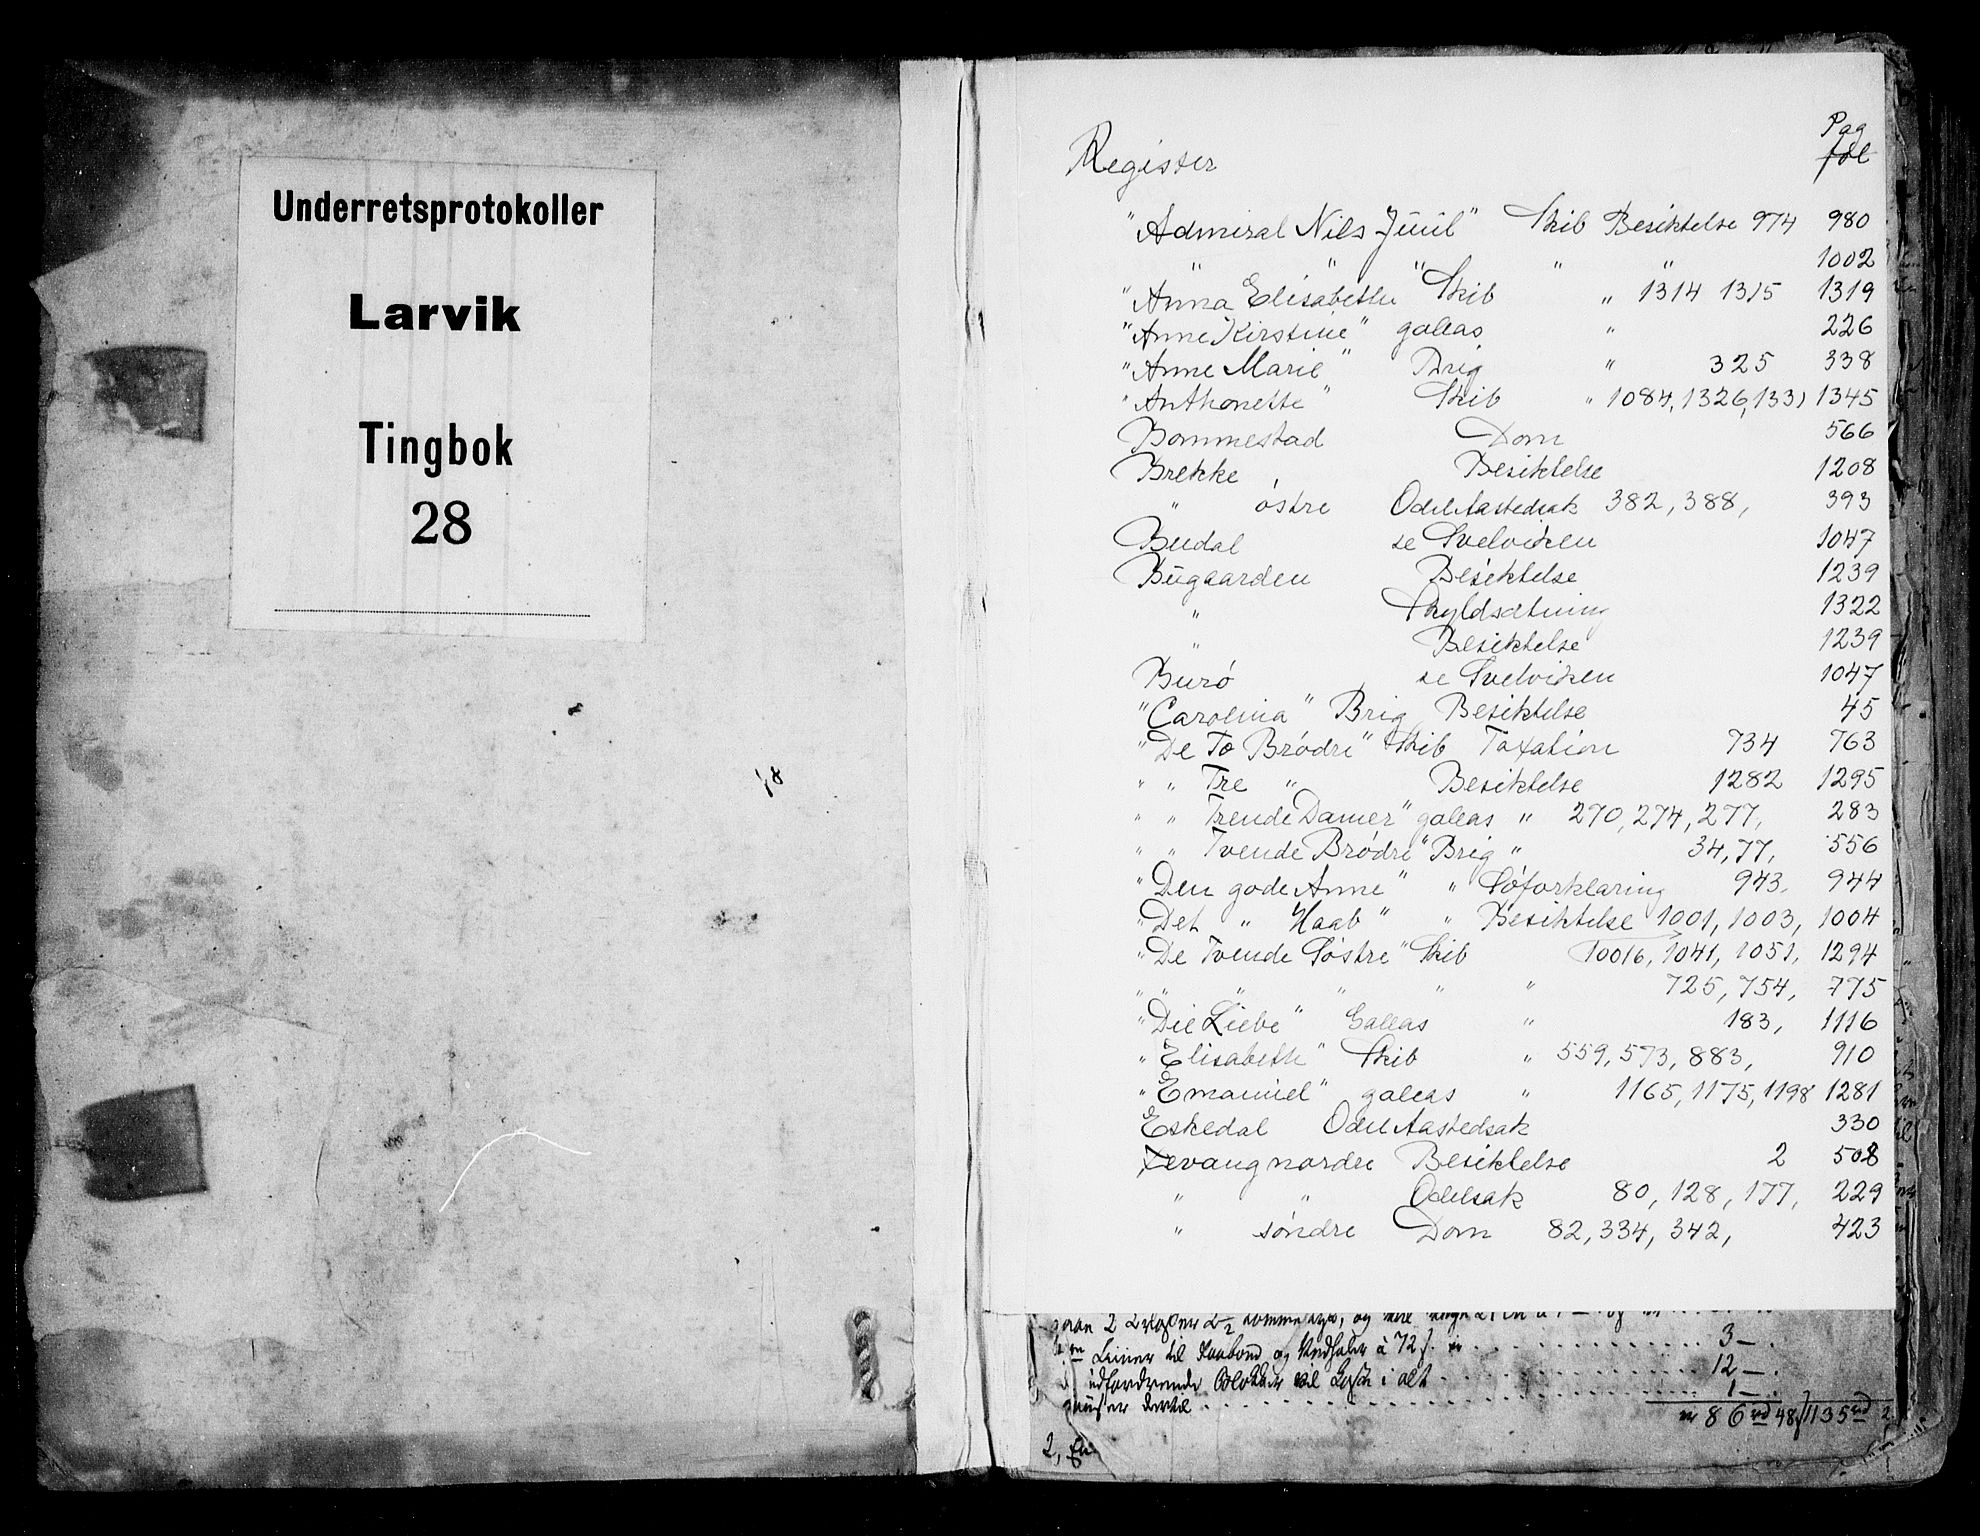 Underretsprotokoller
Larvik
Tingbok
28
18
Pag
Register fol
"Admiral Nils Juul" Skib Besiktelse 974 980
" " " " " 1002
"Anna Elisabethe" Skib " 1314 1315 1319
"Anne Kirstine" galeas " 226
"Anne Marie" Brig " 325 338
"Anthonette" Skib " 1084, 1326, 1331 1345
Bommestad Dom 566
Brekke Besiktelse 1208
" østre Odel Aastedsak 382, 388, 393
Budal se Svelviken 1047
Bugaarden Besiktelse 1239
" Skyldsætning 1322
" Besiktelse 1239
Burø se Svelviken 1047
"Carolina" Brig Besiktelse 45
"De To Brødre" Skib Taxation 734 763
" " Tre " Besiktelse 1282 1295
" " Trende Damer" galeas " 270, 274, 277, 283
" " Tvende Brødre" Brig " 34, 77, 556
"Den gode Anne" " Søforklaring 943, 944
"Det " Haab" " Besiktelse 1001, 1003, 1004
"De Tvende Søstre" Skib 10016, 1041, 1051, 1294
" " " " " " 725, 754, 775
"Die Liebe" Galeas " 183, 1116
"Elisabeth" Skib " 559, 573, 883, 910
"Emanuel" galeas " 1165, 1175, 1198 1281
Eskedal Odel Aastedsak 330
Fevang nordre Besiktelse 2 508
" " Odelsak 80, 128, 177, 229
" søndre Dom 82, 334, 342, 423
3 —
Liner til og à 72 ſ.
12 —
udfordrende Blokker til i alt
1 —
dertil
er 86 rd 48 ſ 1135 rd 2
2, En